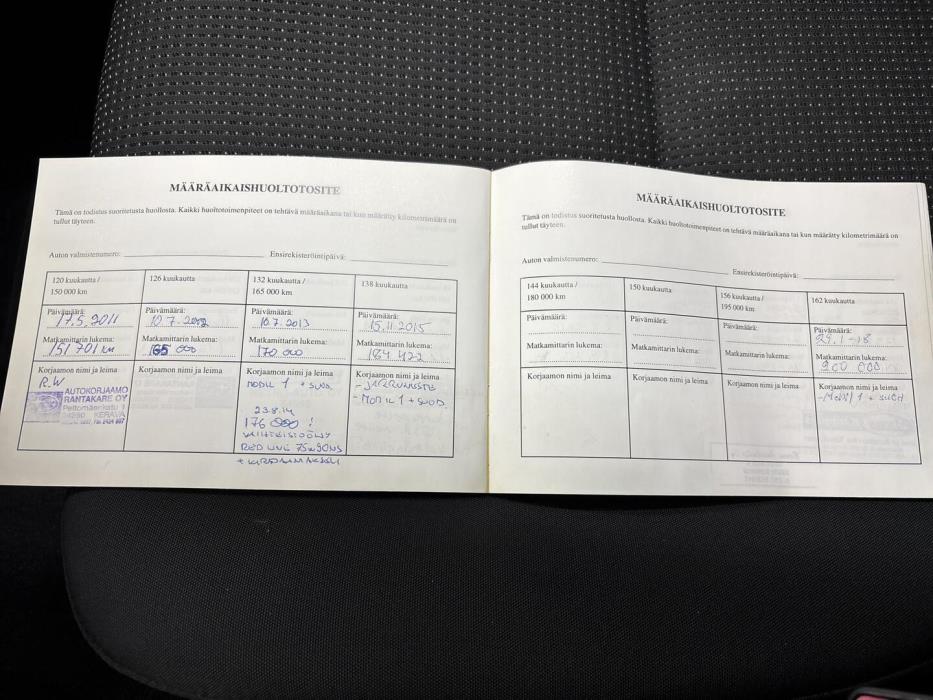 MÄÄRÄAIKAISHUOLTOTOSITE
Tämä on todistus suoritetusta huollosta. Kaikki huoltotoimenpiteet on tehtävä määräaikana tai kun määrätty kilometrimäärä on
tullut täyteen.
Auton valmistenumero: Ensirekisteröintipäivä:
120 kuukautta /
150 000 km
Päivämäärä:
17.5.2011
Matkamittarin lukema:
151 701 km
Korjaamon nimi ja leima
R.W
AUTOKORJAAMO
RANTAKARE OY
Peltomäenkatu 1
KERAVA
126 kuukautta
Päivämäärä:
10.7.2012
Matkamittarin lukema:
165 000
Korjaamon nimi ja leima
132 kuukautta /
165 000 km
Päivämäärä:
10.7.2013
Matkamittarin lukema:
170 000
Korjaamon nimi ja leima
MOBIL 1 + SUOD.
23.8.14
176 000 !
VAIHTEISTOÖLJY
RED LINE 75W90NS
138 kuukautta
Päivämäärä:
15.11.2015
Matkamittarin lukema:
184 422
Korjaamon nimi ja leima
- JARRUNESTE
- MOBIL 1 + SUOD.
MÄÄRÄAIKAISHUOLTOTOSITE
Tämä on todistus suoritetusta huollosta. Kaikki huoltotoimenpiteet on tehtävä määräaikana tai kun määrätty kilometrimäärä on
tullut täyteen.
Auton valmistenumero: Ensirekisteröintipäivä:
144 kuukautta /
180 000 km
Päivämäärä:
Matkamittarin lukema:
Korjaamon nimi ja leima
150 kuukautta
Päivämäärä:
Matkamittarin lukema:
Korjaamon nimi ja leima
156 kuukautta /
195 000 km
Päivämäärä:
Matkamittarin lukema:
Korjaamon nimi ja leima
162 kuukautta
Päivämäärä:
29.1-18
Matkamittarin lukema:
200 000
Korjaamon nimi ja leima
- Mobil 1 +